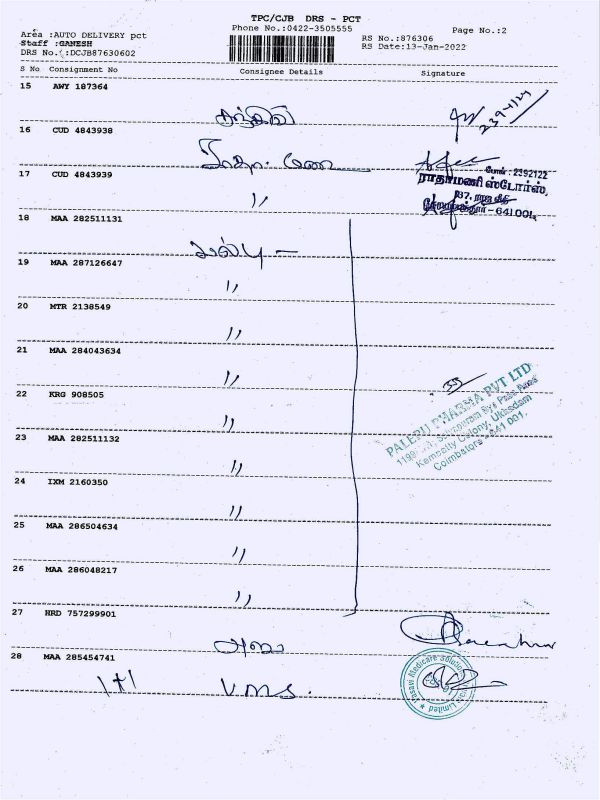 TPC/CJB DRS - PCT
Phone No.:0422-3505555
Page No.:2
Area :AUTO DELIVERY pct
Staff :GANESH
DRS No.:DCJB87630602
RS No.:876306
RS Date:13-Jan-2022
S No Consignment No Consignee Details Signature
15 AWY 187364
16 CUD 4843938
17 CUD 4843939
போன் : 2392122
ராதாமணி ஸ்டோர்ஸ்,
"
18 MAA 282511131
19 MAA 287126647
"
20 MTR 2138549
"
21 MAA 284043634
"
22 KRG 908505
"
PALEPU PHARMA PVT LTD
Kempatty Colony, Ukkadam
Coimbatore - 641 001.
23 MAA 282511132
"
24 IXM 2160350
"
25 MAA 286504634
"
26 MAA 286048217
"
27 HRD 757299901
28 MAA 285454741
V.M.S.